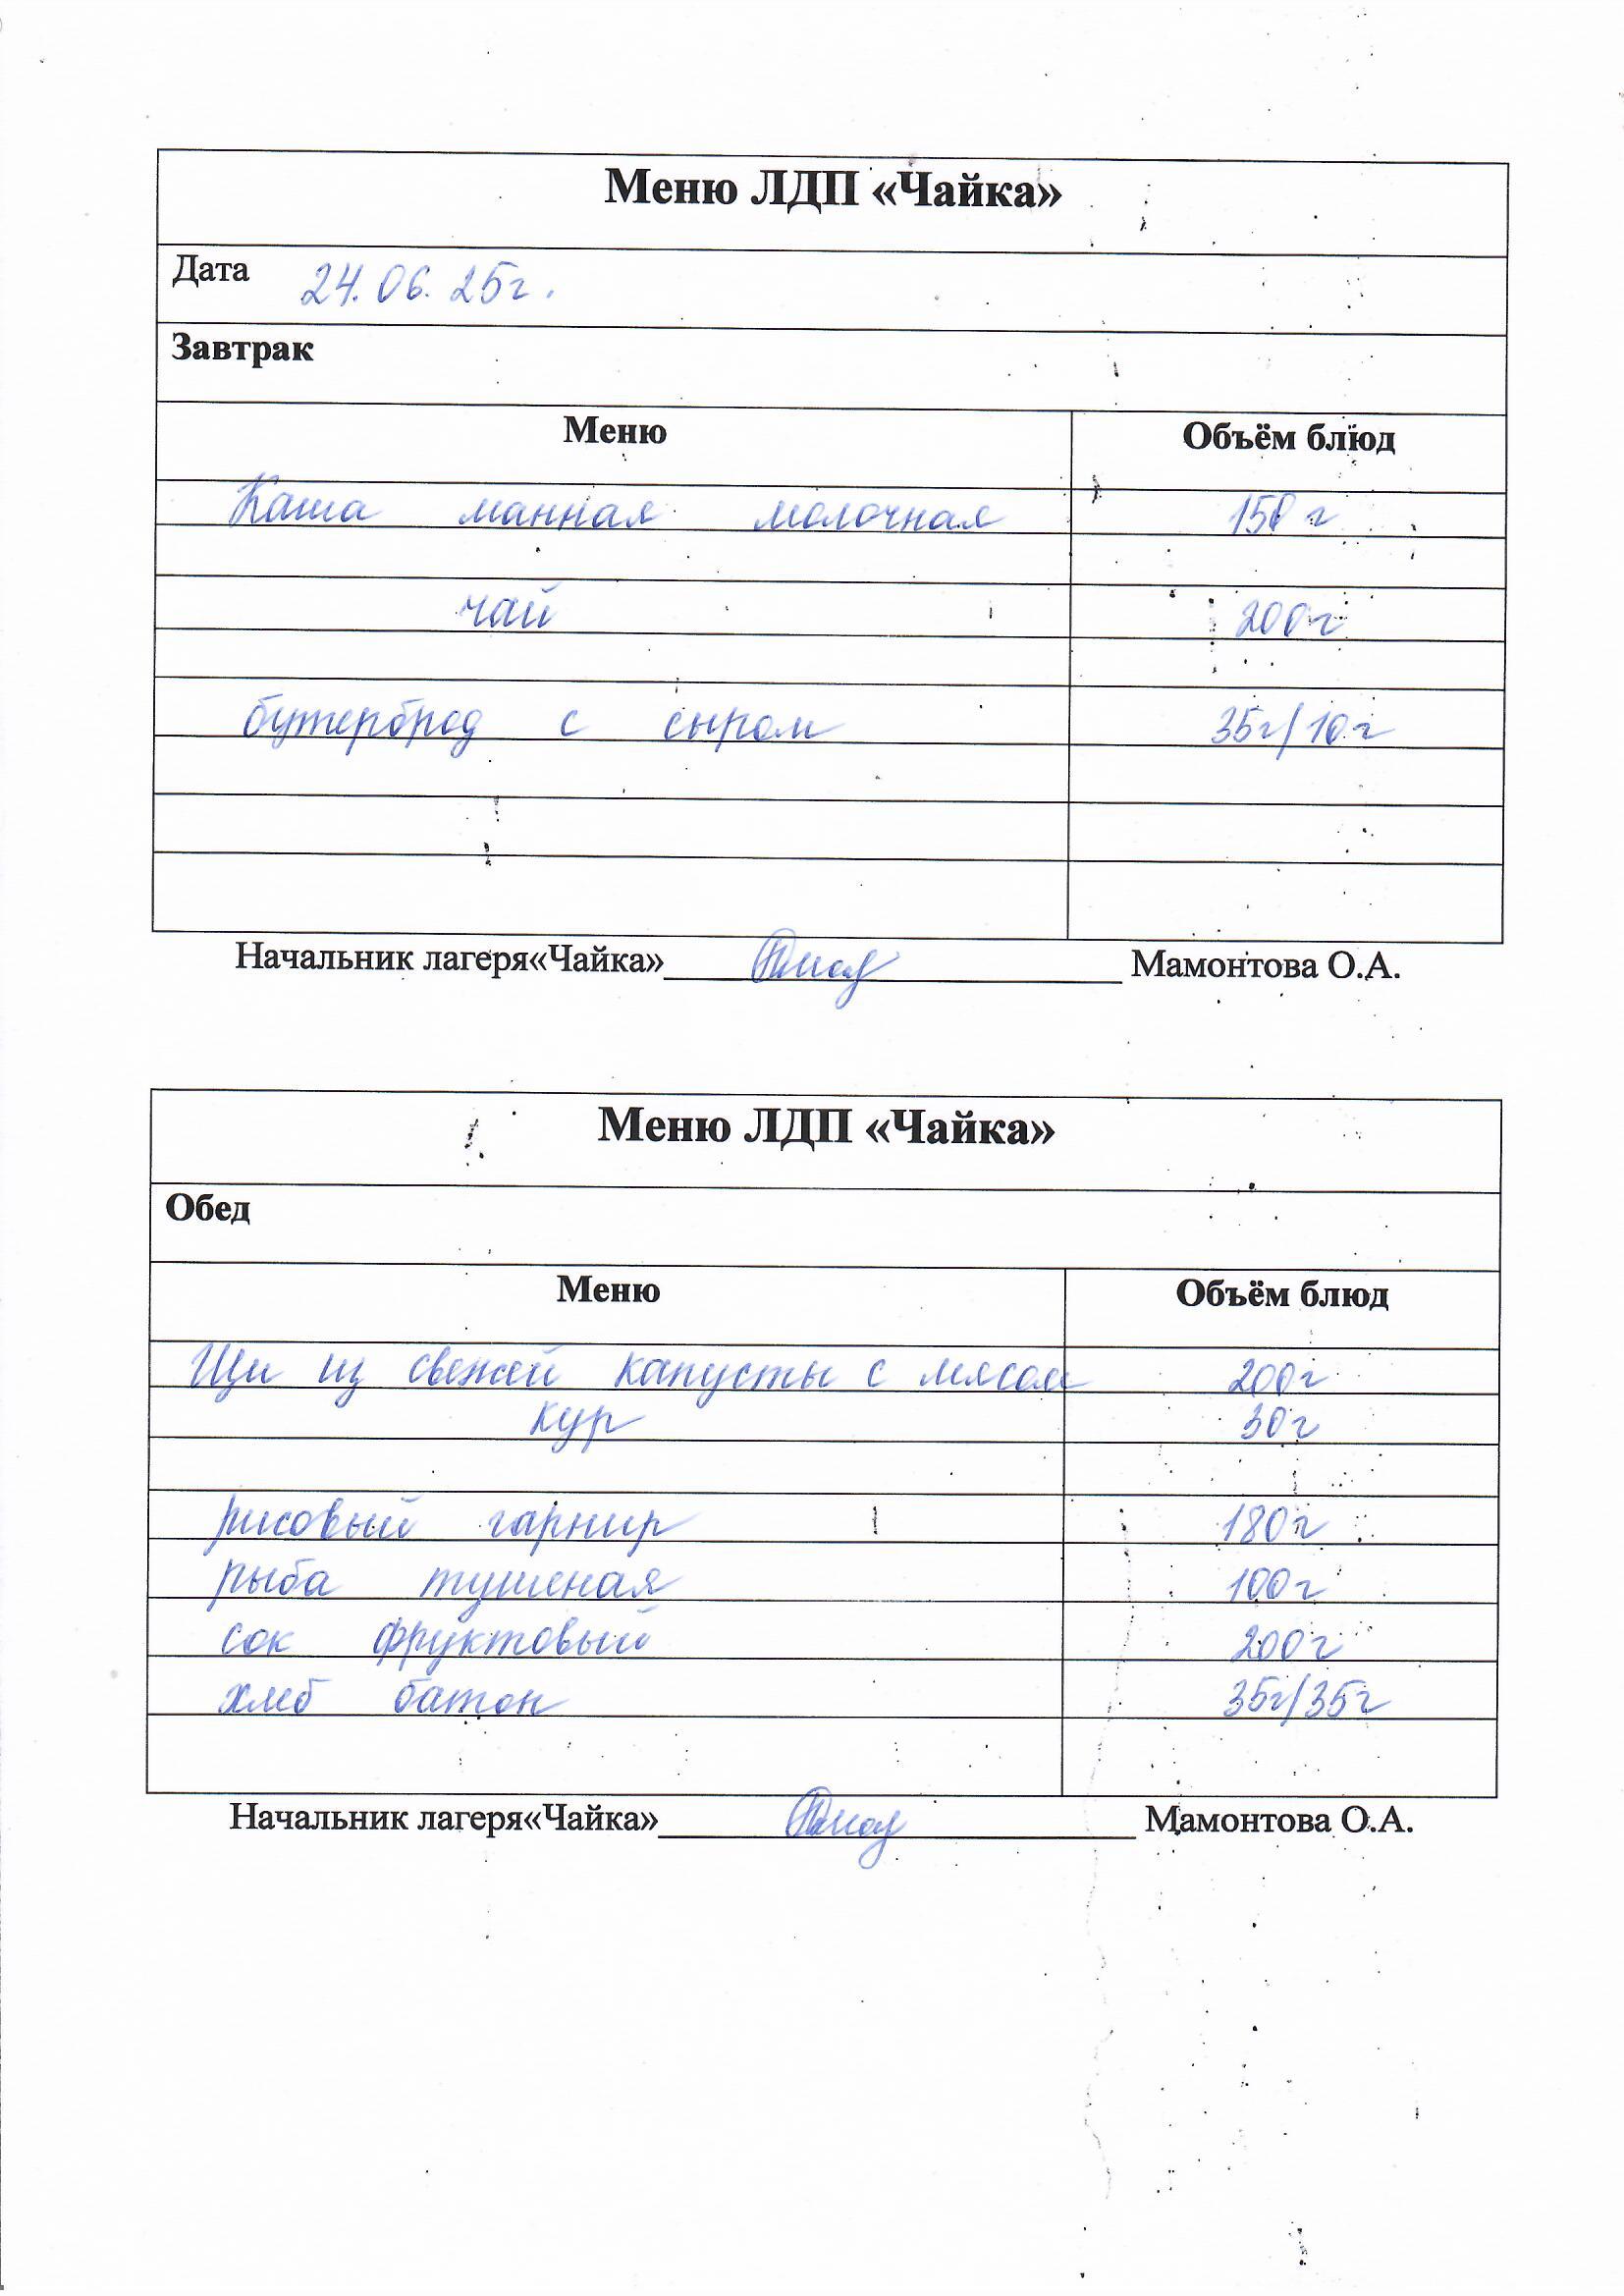 Меню ЛДП «Чайка»
Дата 24.06.25г.
Завтрак
Меню Объём блюд
Каша манная молочная 150 г
чай 200г
бутерброд с сыром 35г/10г
Начальник лагеря«Чайка» Мамонтова О.А.
Меню ЛДП «Чайка»
Обед
Меню Объём блюд
Щи из свежей капусты с мясом 200г
кур 30г
рисовый гарнир 180г
рыба тушеная 100г
сок фруктовый 200г
хлеб батон 35г/35г
Начальник лагеря«Чайка» Мамонтова О.А.